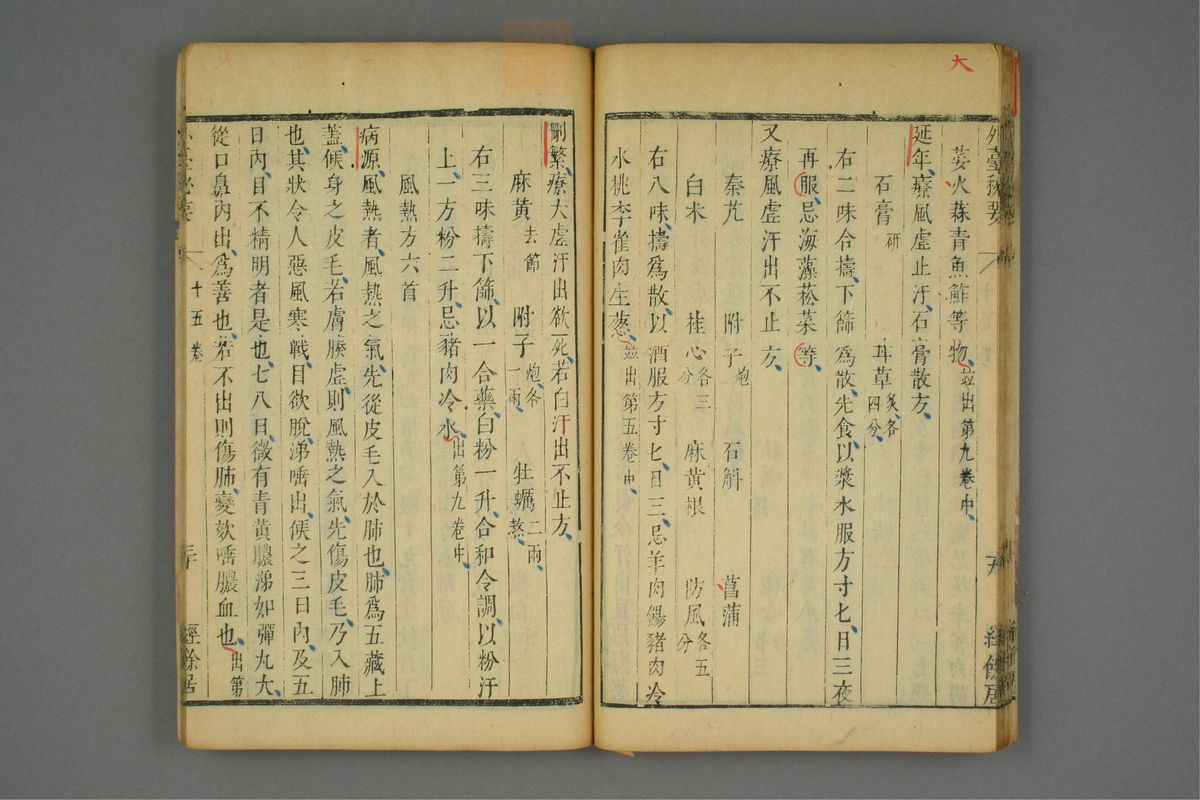 大
外臺秘要
蔆火蒜青魚鮓等物竝出第九卷中
延年療風虛止汗石膏散方
石膏研 甘草炙各四分
右二味合擣下篩爲散先食以漿水服方寸匕日三夜
再服忌海藻菘菜等
又療風虛汗出不止方
秦艽 附子炮 石斛 菖蒲
白朮 桂心各三分 麻黃根 防風各五分
右八味擣爲散以酒服方寸匕日三忌羊肉餳豬肉冷
水桃李雀肉生蔥竝出第五卷中
刪繁療大虛汗出欲死若白汗出不止方
麻黃去節 附子炮各一兩 牡蠣二兩熬
右三味擣下篩以一合藥白粉一升合和令調以粉汗
上一方粉二升忌豬肉冷水出第九卷中
風熱方六首
病源風熱者風熱之氣先從皮毛入於肺也肺爲五藏上
蓋候身之皮毛若膚腠虛則風熱之氣先傷皮毛乃入肺
也其狀令人惡風寒戰目欲脫涕唾出候之三日內及五
日內目不精明者是也七八日微有青黃膿涕如彈丸大
從口鼻內出爲善也若不出則傷肺變欬唾膿血也出第
外臺秘要
十五卷
經餘居